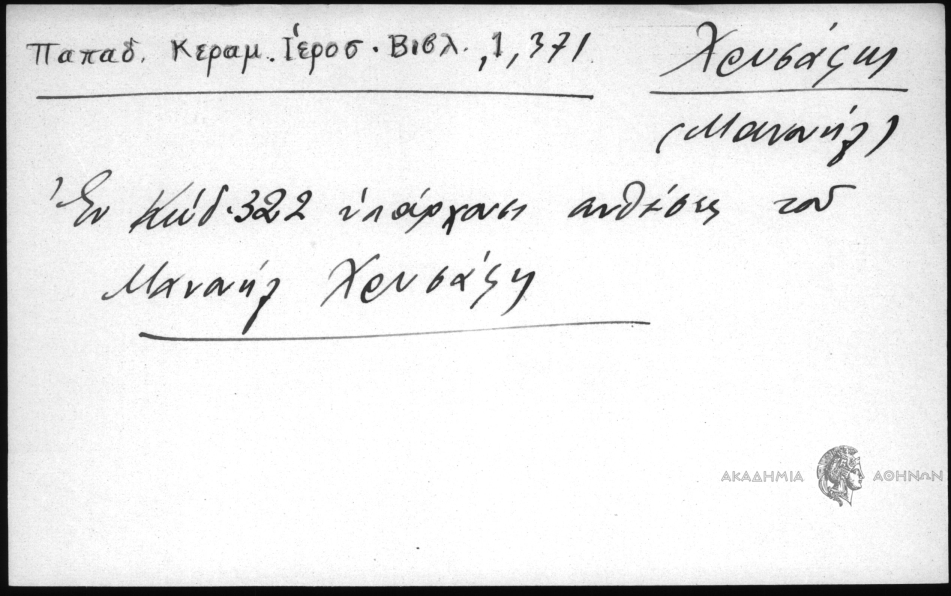 Παπαδ. Κεραμ. Ἱεροσ. Βιβλ., 1, 371
Χρυσάφη
(Μανουήλ)
Ἐν Κώδ. 322 ὑπάρχουσι συνθέσεις τοῦ
Μανουήλ Χρυσάφη
ΑΚΑΔΗΜΙΑ ΑΘΗΝΩΝ